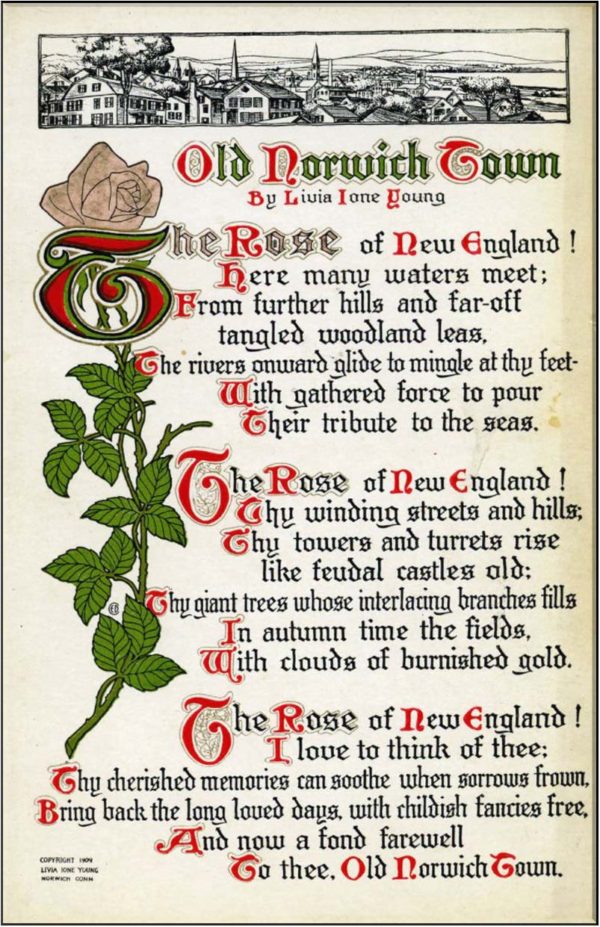 Old Norwich Town
By Livia Ione Young
The Rose of New England!
Here many waters meet;
From further hills and far-off
tangled woodland leas,
The rivers onward glide to mingle at thy feet-
With gathered force to pour
Their tribute to the seas.
The Rose of New England!
Thy winding streets and hills;
Thy towers and turrets rise
like feudal castles old;
Thy giant trees whose interlacing branches fills
In autumn time the fields,
With clouds of burnished gold.
The Rose of New England!
I love to think of thee;
Thy cherished memories can soothe when sorrows frown,
Bring back the long loved days, with childish fancies free,
And now a fond farewell
To thee, Old Norwich Town.
COPYRIGHT 1909
LIVIA IONE YOUNG
NORWICH CONN